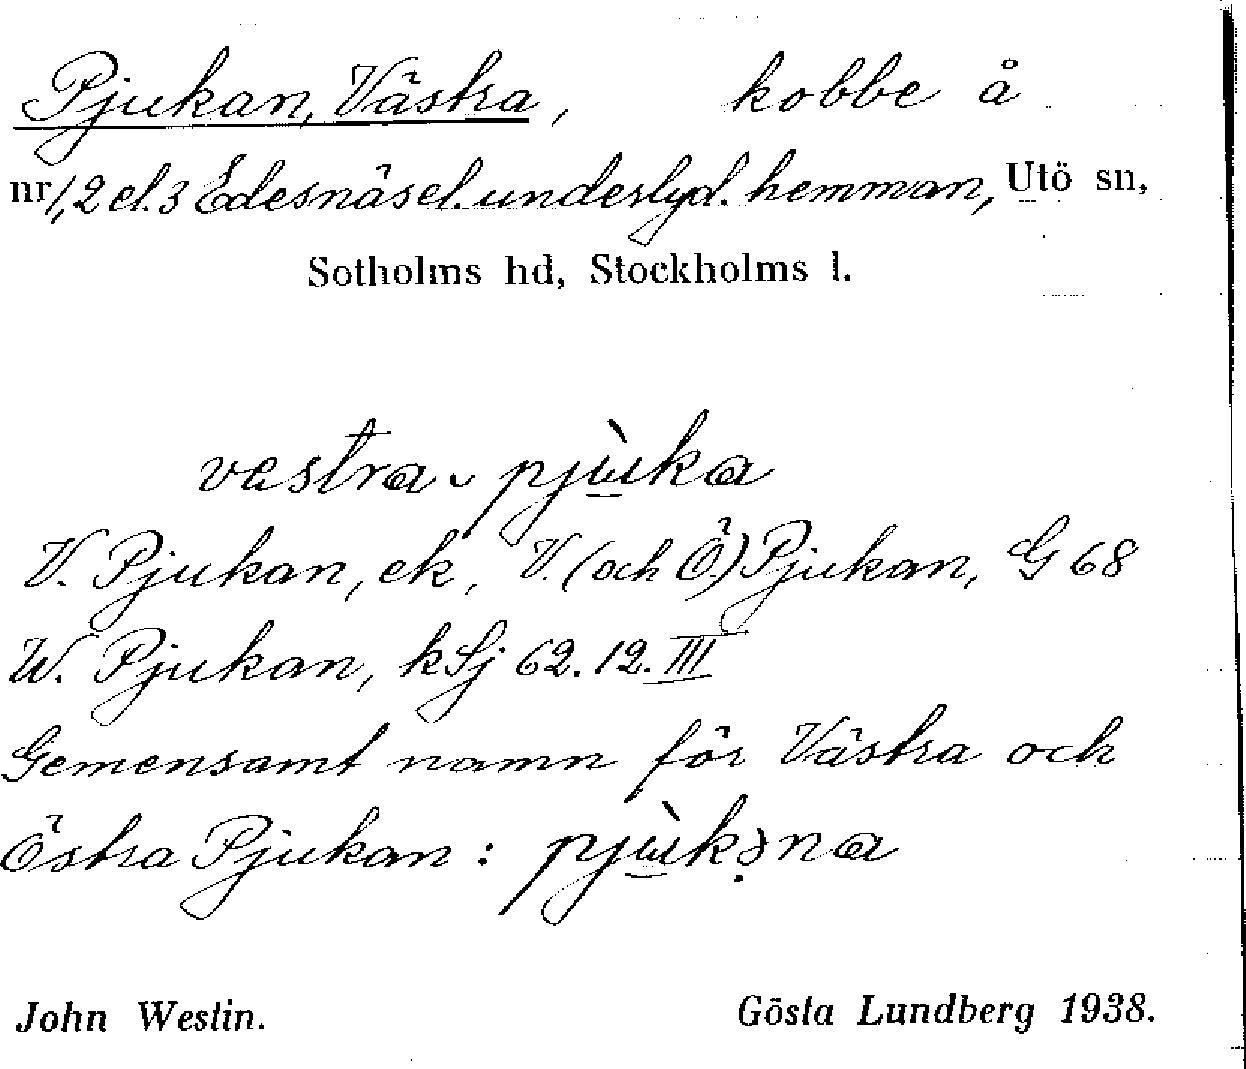 Pjukan, Västra, kobbe å
nr 1, 2 el. 3 Edesnäs el. underlyd. hemman, Utö sn,
Sotholms hd, Stockholms l.
vestra pjùka
V. Pjukan, ek, V. (och Ö.) Pjukan, G 68
W. Pjukan, kSj 62. 12. III
Gemensamt namn för Västra och
Östra Pjukan: pjùkəna
John Westin. Gösta Lundberg 1938.